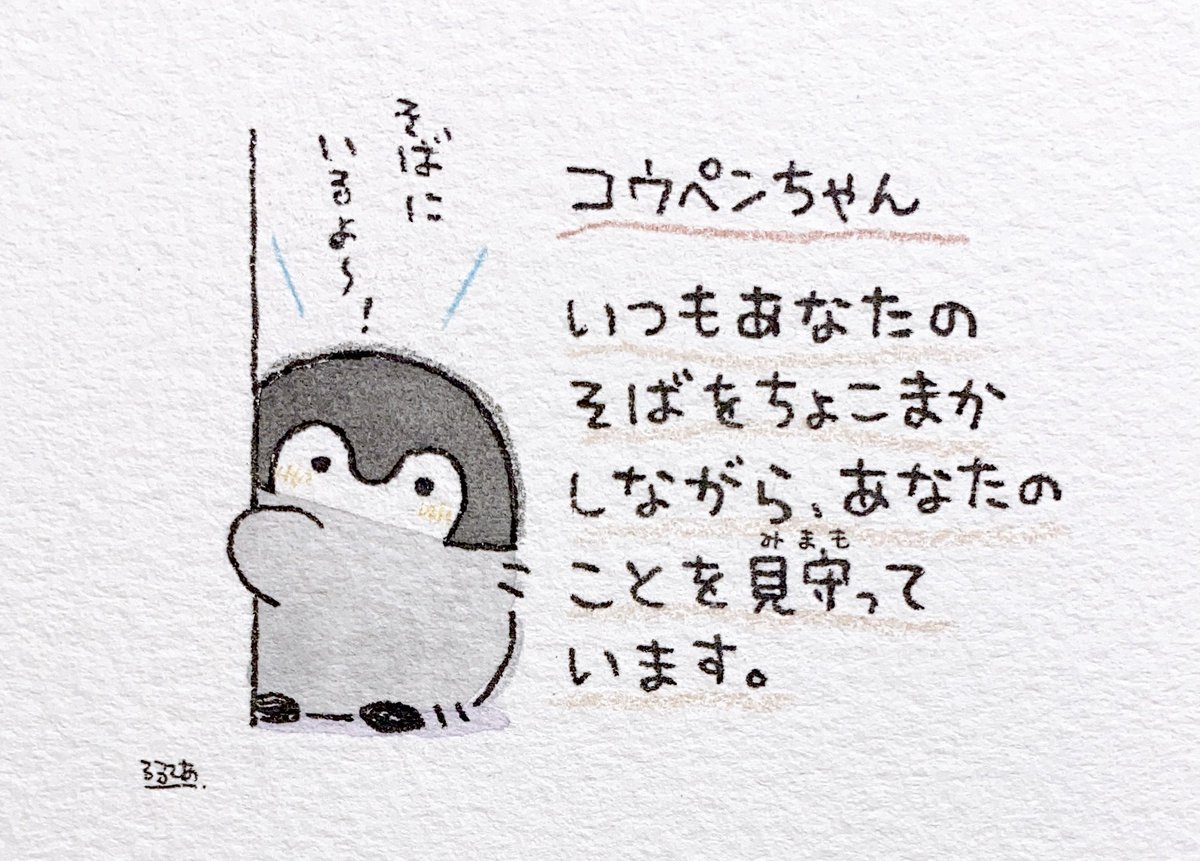 そばに
いるよ〜!
コウペンちゃん
いつもあなたの
そばをちょこまか
しながら、あなたの
ことを見守って
みまも
います。
るるてあ.